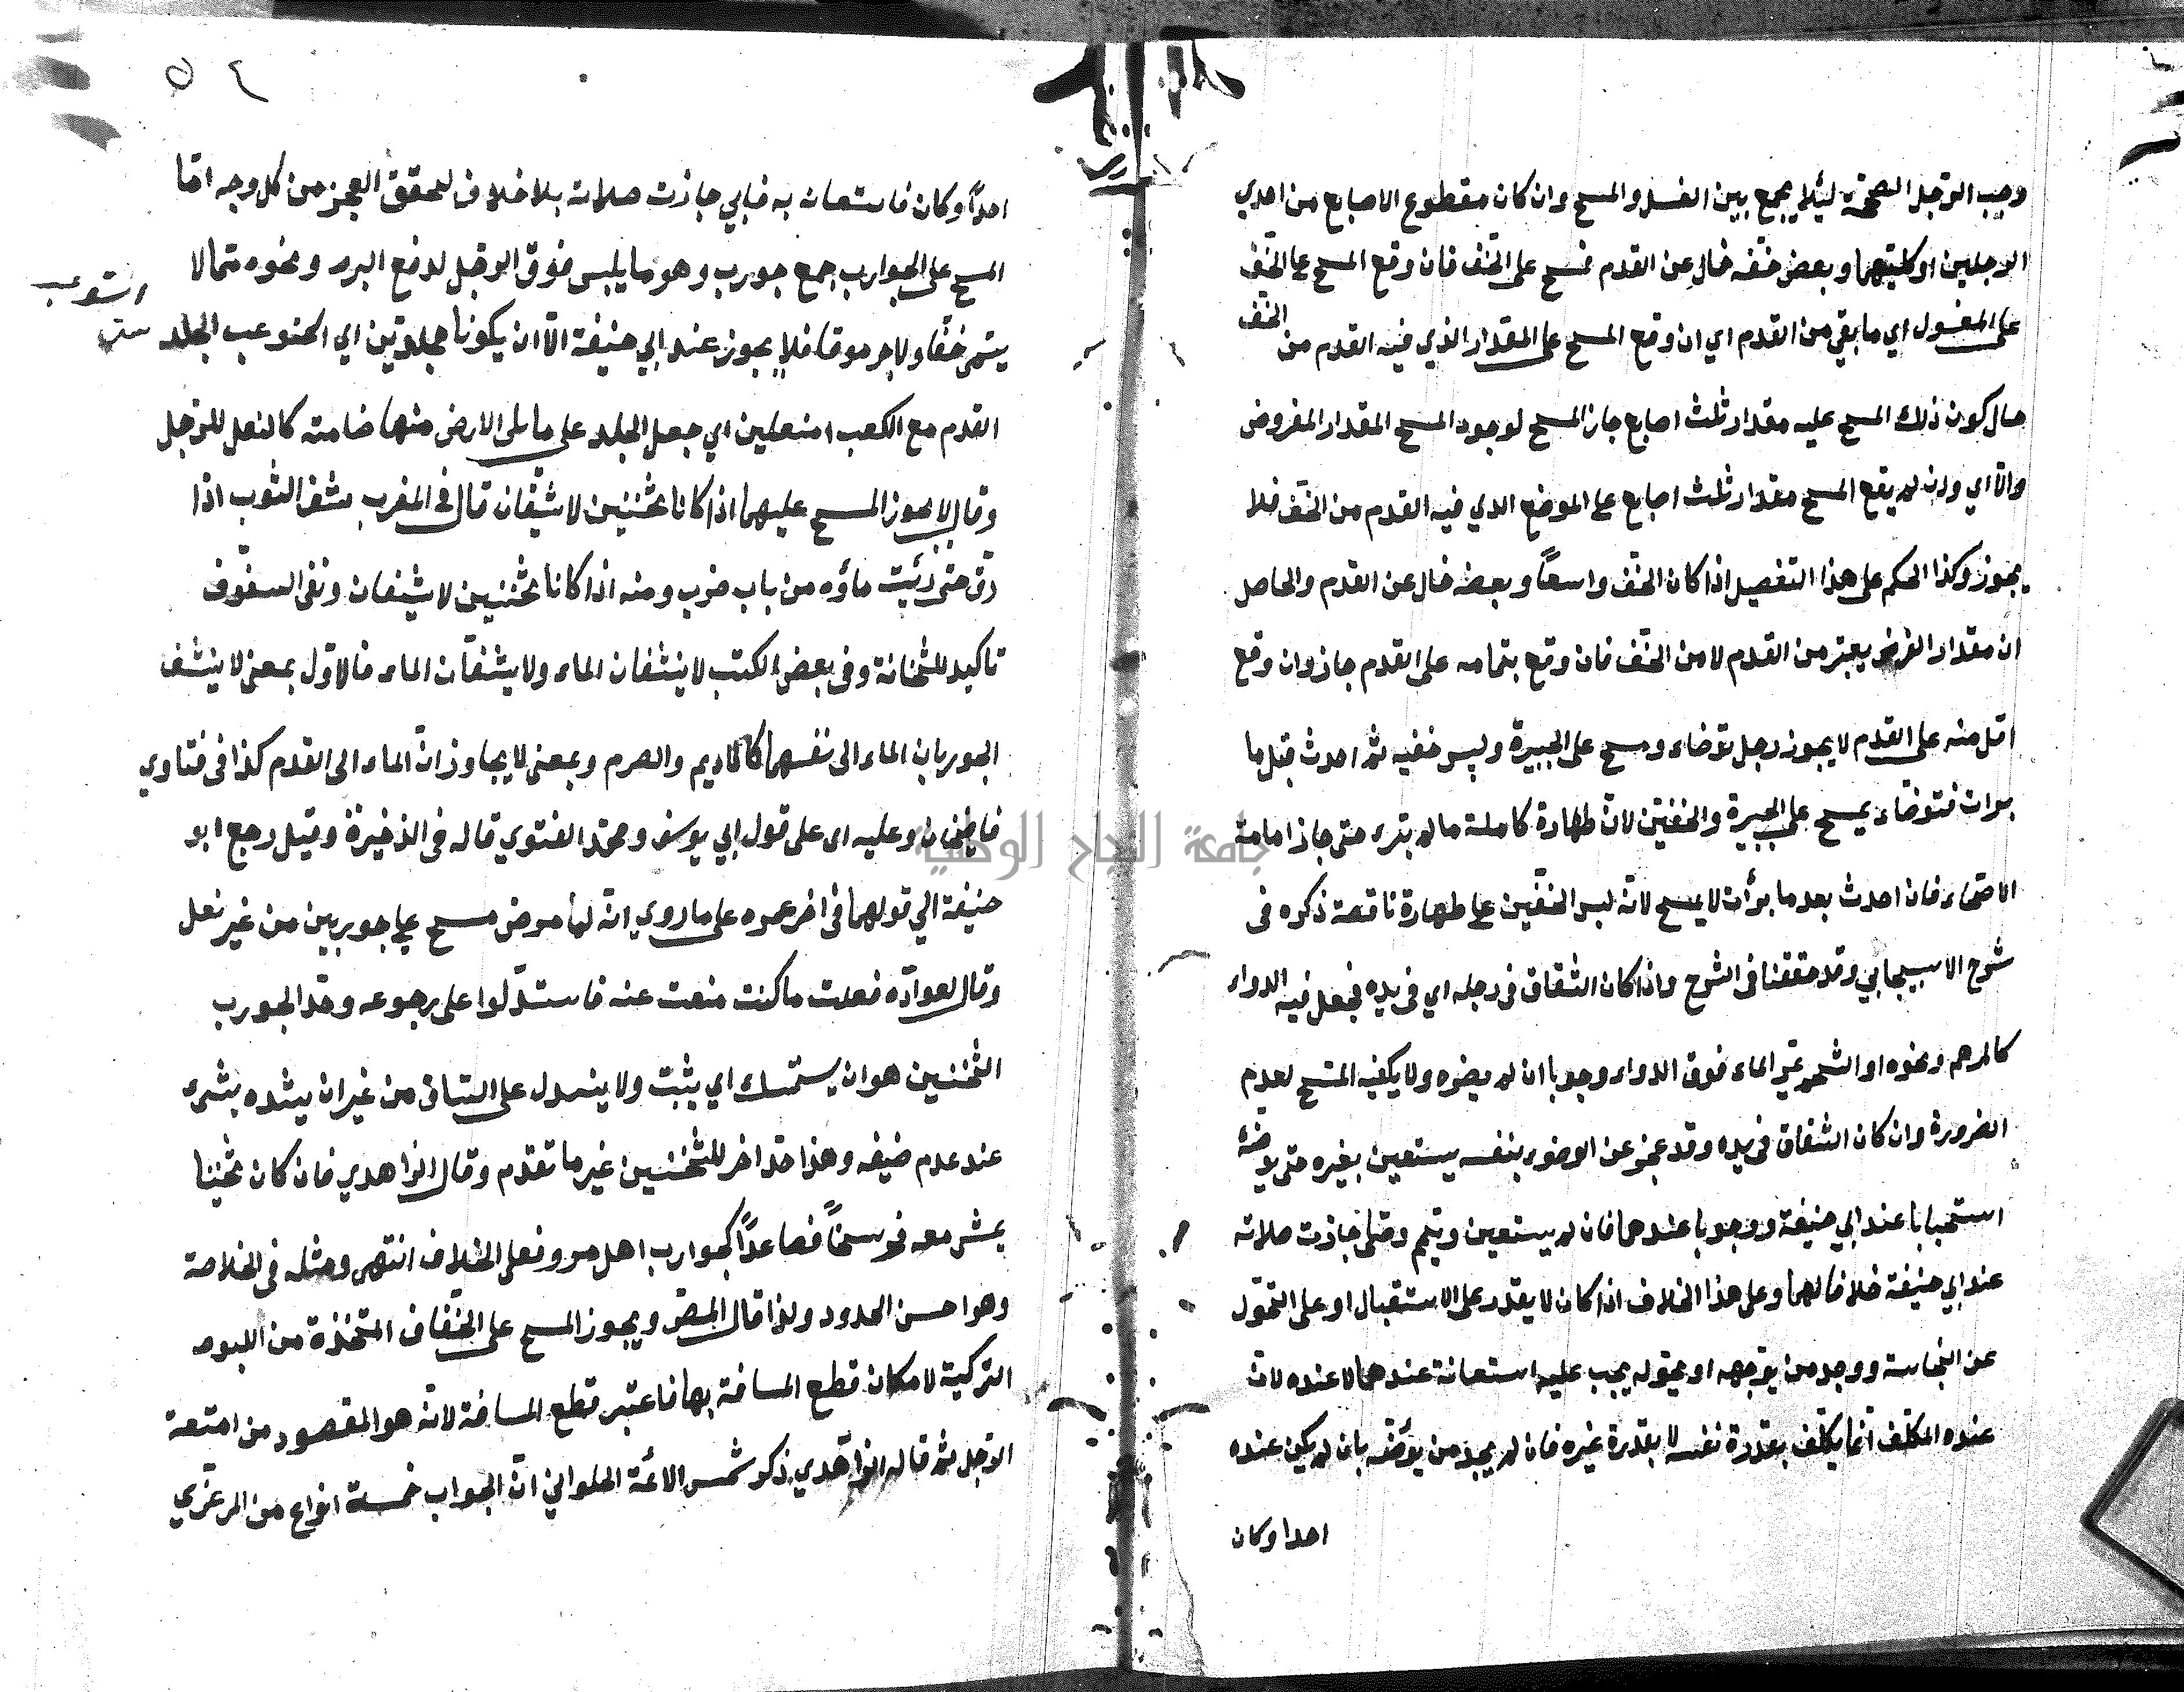 وجب الرجل الصحيحة ليلا يجمع بين الغسل والمسح وان كان مقطوع الاصابع من احدي
الرجلين او كلتيهما وبعض خفه خال عن القدم فمسح على الخف فان وقع المسح على الخف
على المغسول اي ما بقي من القدم اي ان وقع المسح على المقدار الذي فيه القدم من الخف
حال كون ذلك المسح عليه مقدار ثلث اصابع جاز المسح لوجود المسح المقدار المفروض
والا اي وان لم يقع المسح مقدار ثلث اصابع على الموضع الذي فيه القدم من الخف فلا
يجوز وكذا الحكم على هذا التفصيل اذا كان الخف واسعاً وبعضه خال عن القدم والحاصل
ان مقدار الفرض يعتبر من القدم لا من الخف فان وقع بتمامه على القدم جاز وان وقع
اقل منه على القدم لا يجوز رجل توضاء ومسح على الجبيرة ولبس خفيه ثم احدث قبل ما
برات فتوضاء يمسح على الجبيرة والخفين لان طهارة كاملة ما لم يترى حتى جاز امامة
الاصحاء فان احدث بعد ما برأت لا يمسح لانه لبس الخفين على طهارة ناقصة ذكره فى
شرح الاسبيجابي وقد حققنا فى الشرح واذا كان الشقاق فى رجله اي فى يده فجعل فيه الدواء
كالمرهم ونحوه او الشحم يمر الماء فوق الدواء وجوبا ان لم يضره ولا يكفيه المسح لعدم
الضرورة وان كان الشقاق فى يده وقد عجز عن الوضوء بنفسه يستعين بغيره حتى يوضئه
استحبابا عند ابي حنيفة ووجوبا عندهما فان لم يستعين وتيمم وصلى جازت صلاته
عند ابي حنيفة خلافا لهما وعلى هذا الخلاف اذا كان لا يقدر على الاستقبال او على التحول
عن النجاسة ووجد من يوجهه او يحوله يجب عليه استعانة عندهما لا عنده لان
عنده المكلف انما يكلف بقدرة نفسه لا بقدرة غيره فان لم يجد من يوضئه بان لم يكن عنده
احدا وكان
٥٤
احداً وكان فاستعان به فابي جازت صلاته بلا خلاف لتحقق العجز من كل وجه امّا
المسح على الجوارب جمع جورب وهو ما يلبس فوق الرجل لدفع البرد ونحوه مما لا
يسمى خفا ولا جرموقا فلا يجوز عند ابي حنيفة الّا ان يكونا مجلدين اي استوعب الجلد
استوعب
القدم مع الكعب او منعلين اي جعل الجلد على ما يلى الارض منهما خاصة كالنعل للرجل
وقالا يجوز المسح عليهما اذا كانا ثخنين لا يشفّان قال فى المغرب شف الثوب اذا
رق حتى رئيت ماؤه من باب ضرب ومنه اذا كانا ثخنين لا يشفان ونفى السفوف
تاكيد للثخانة وفى بعض الكتب لا ينشفان الماء ولا يشفّان الماء فالاول بمعنى لا ينشف
الجوربان الماء الى نفسهما كالاديم والصرم وبمعنى لا يجاوزان الماء الى القدم كذا فى فتاوي
قاضيخان وعليه اى على قول ابي يوسف ومحمد الفتوي قاله فى الذخيرة وقيل رجع ابو
حنيفة الي قولهما فى اخر عمره على ما روي انه لما مرض مسح على جوربين من غير نعل
وقال لعواده فعلت ما كنت منعت عنه فاستدلوا على رجوعه وحد الجورب
الثخنين هو ان يستمسك اي يثبت ولا ينسدل على الساق من غير ان يشده بشىء
عند عدم ضيقه وهذا حد اخر للثخنين غير ما تقدم وقال الزاهدي فان كان ثخينا
يمشى معه فرسخاً فصاعداً كجوارب اهل مرو فعلى الخلاف انتهى ومثله فى الخلاصة
وهو احسن الحدود ولذا قال المص ويجوز المسح على الخفاف المتخذة من اللبود
التركية لامكان قطع المسافة بها فاعتبر قطع المسافة لانه هو المقصود من امتعة
الرجل ثم قال الزاهدي ذكر شمس الائمة الحلواني انّ الجواب خمسة انواع من المرعزي
جامعة النجاح الوطنية